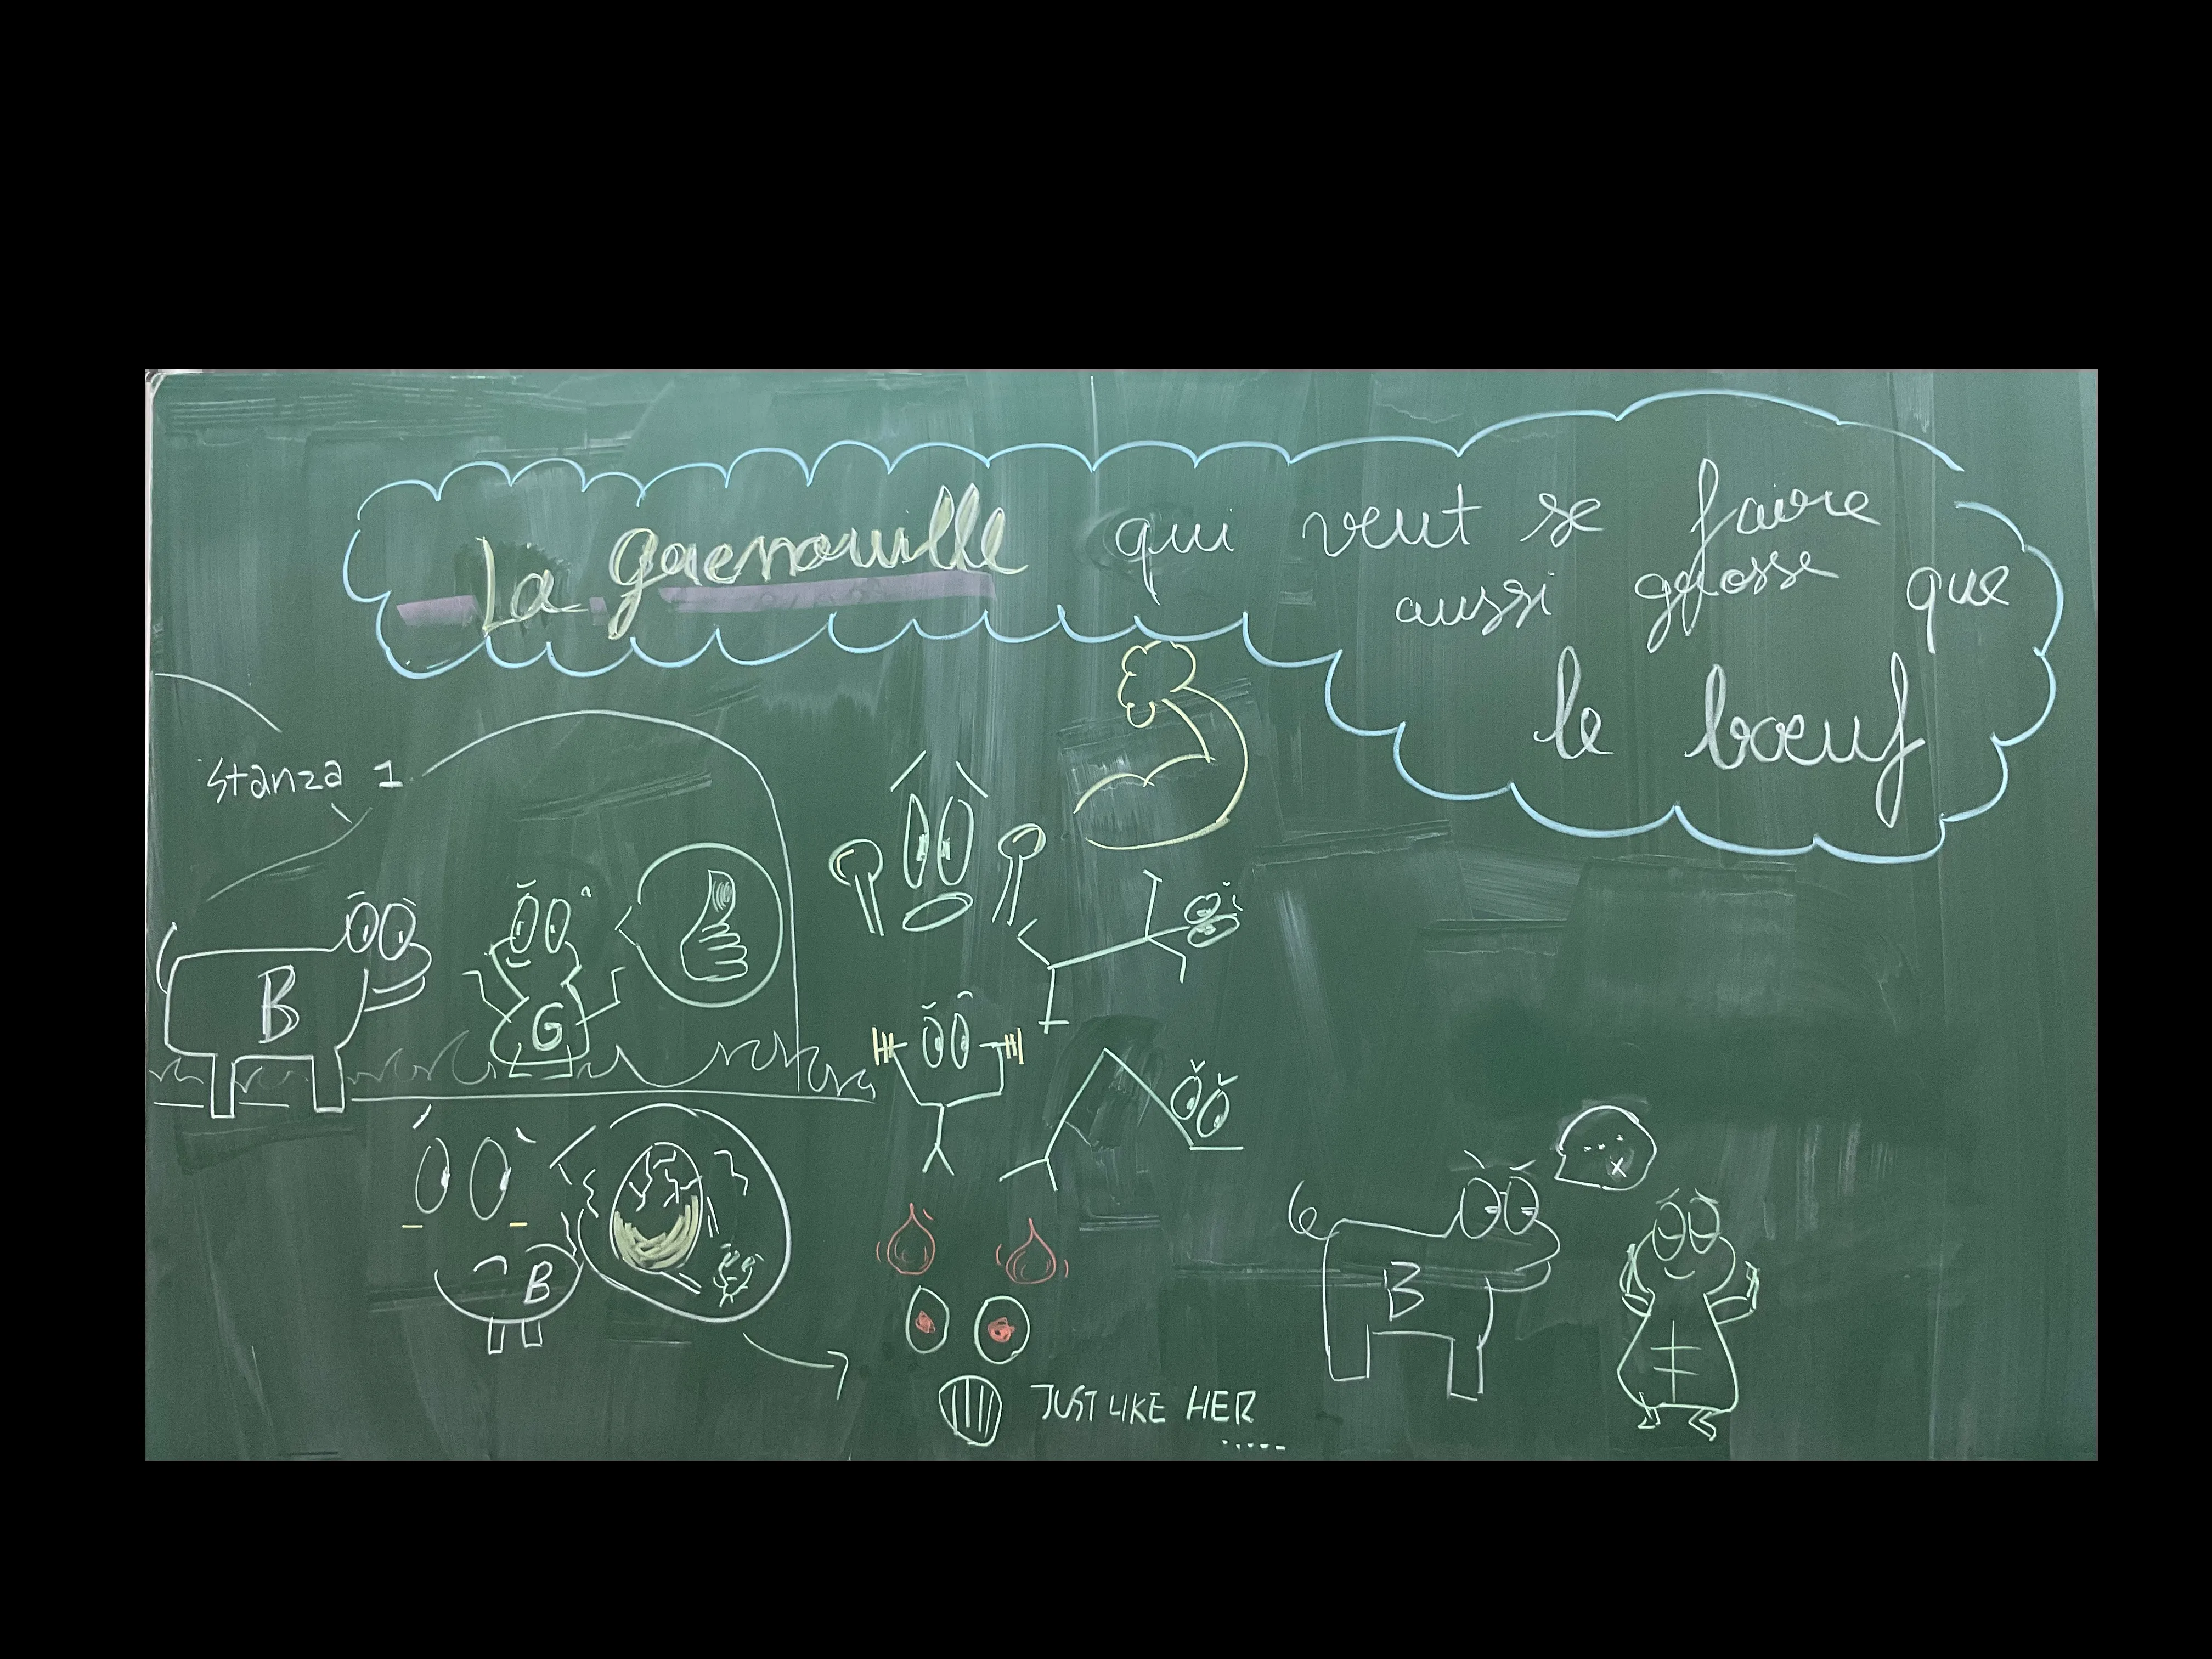 La grenouille qui veut se faire
aussi grosse que
le bœuf
Stanza 1
B
G
B
JUST LIKE HER
.....
B